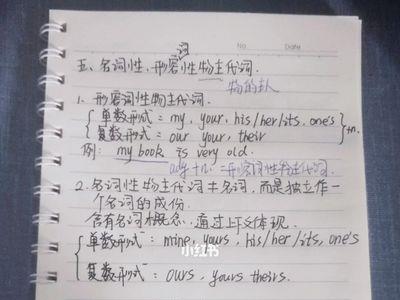 No.
Date
词
五、名词性,形容性物主代词.
物的主人
1. 形容词性物主代词.
单数形式 = my, your, his/her/its, one's
复数形式 = our your, their
+n.
例: my book is very old.
adj + n. 形容词性物主代词.
2. 名词性物主代词 + 名词, 而是独立作一
个名词的成份.
含有名词概念, 通过上下文体现.
小红书
单数形式: mine, yours, his/her/its, one's
复数形式: ours, yours theirs.